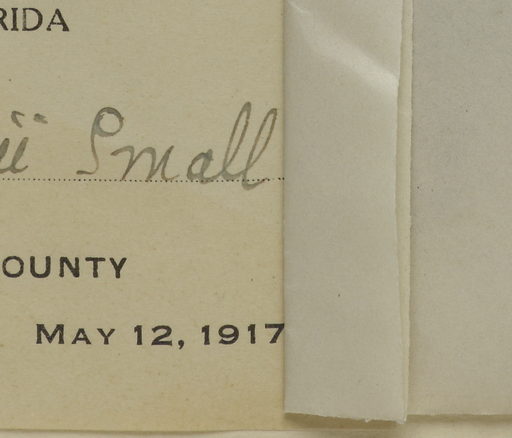 RIDA
ii Small
OUNTY
MAY 12, 1917